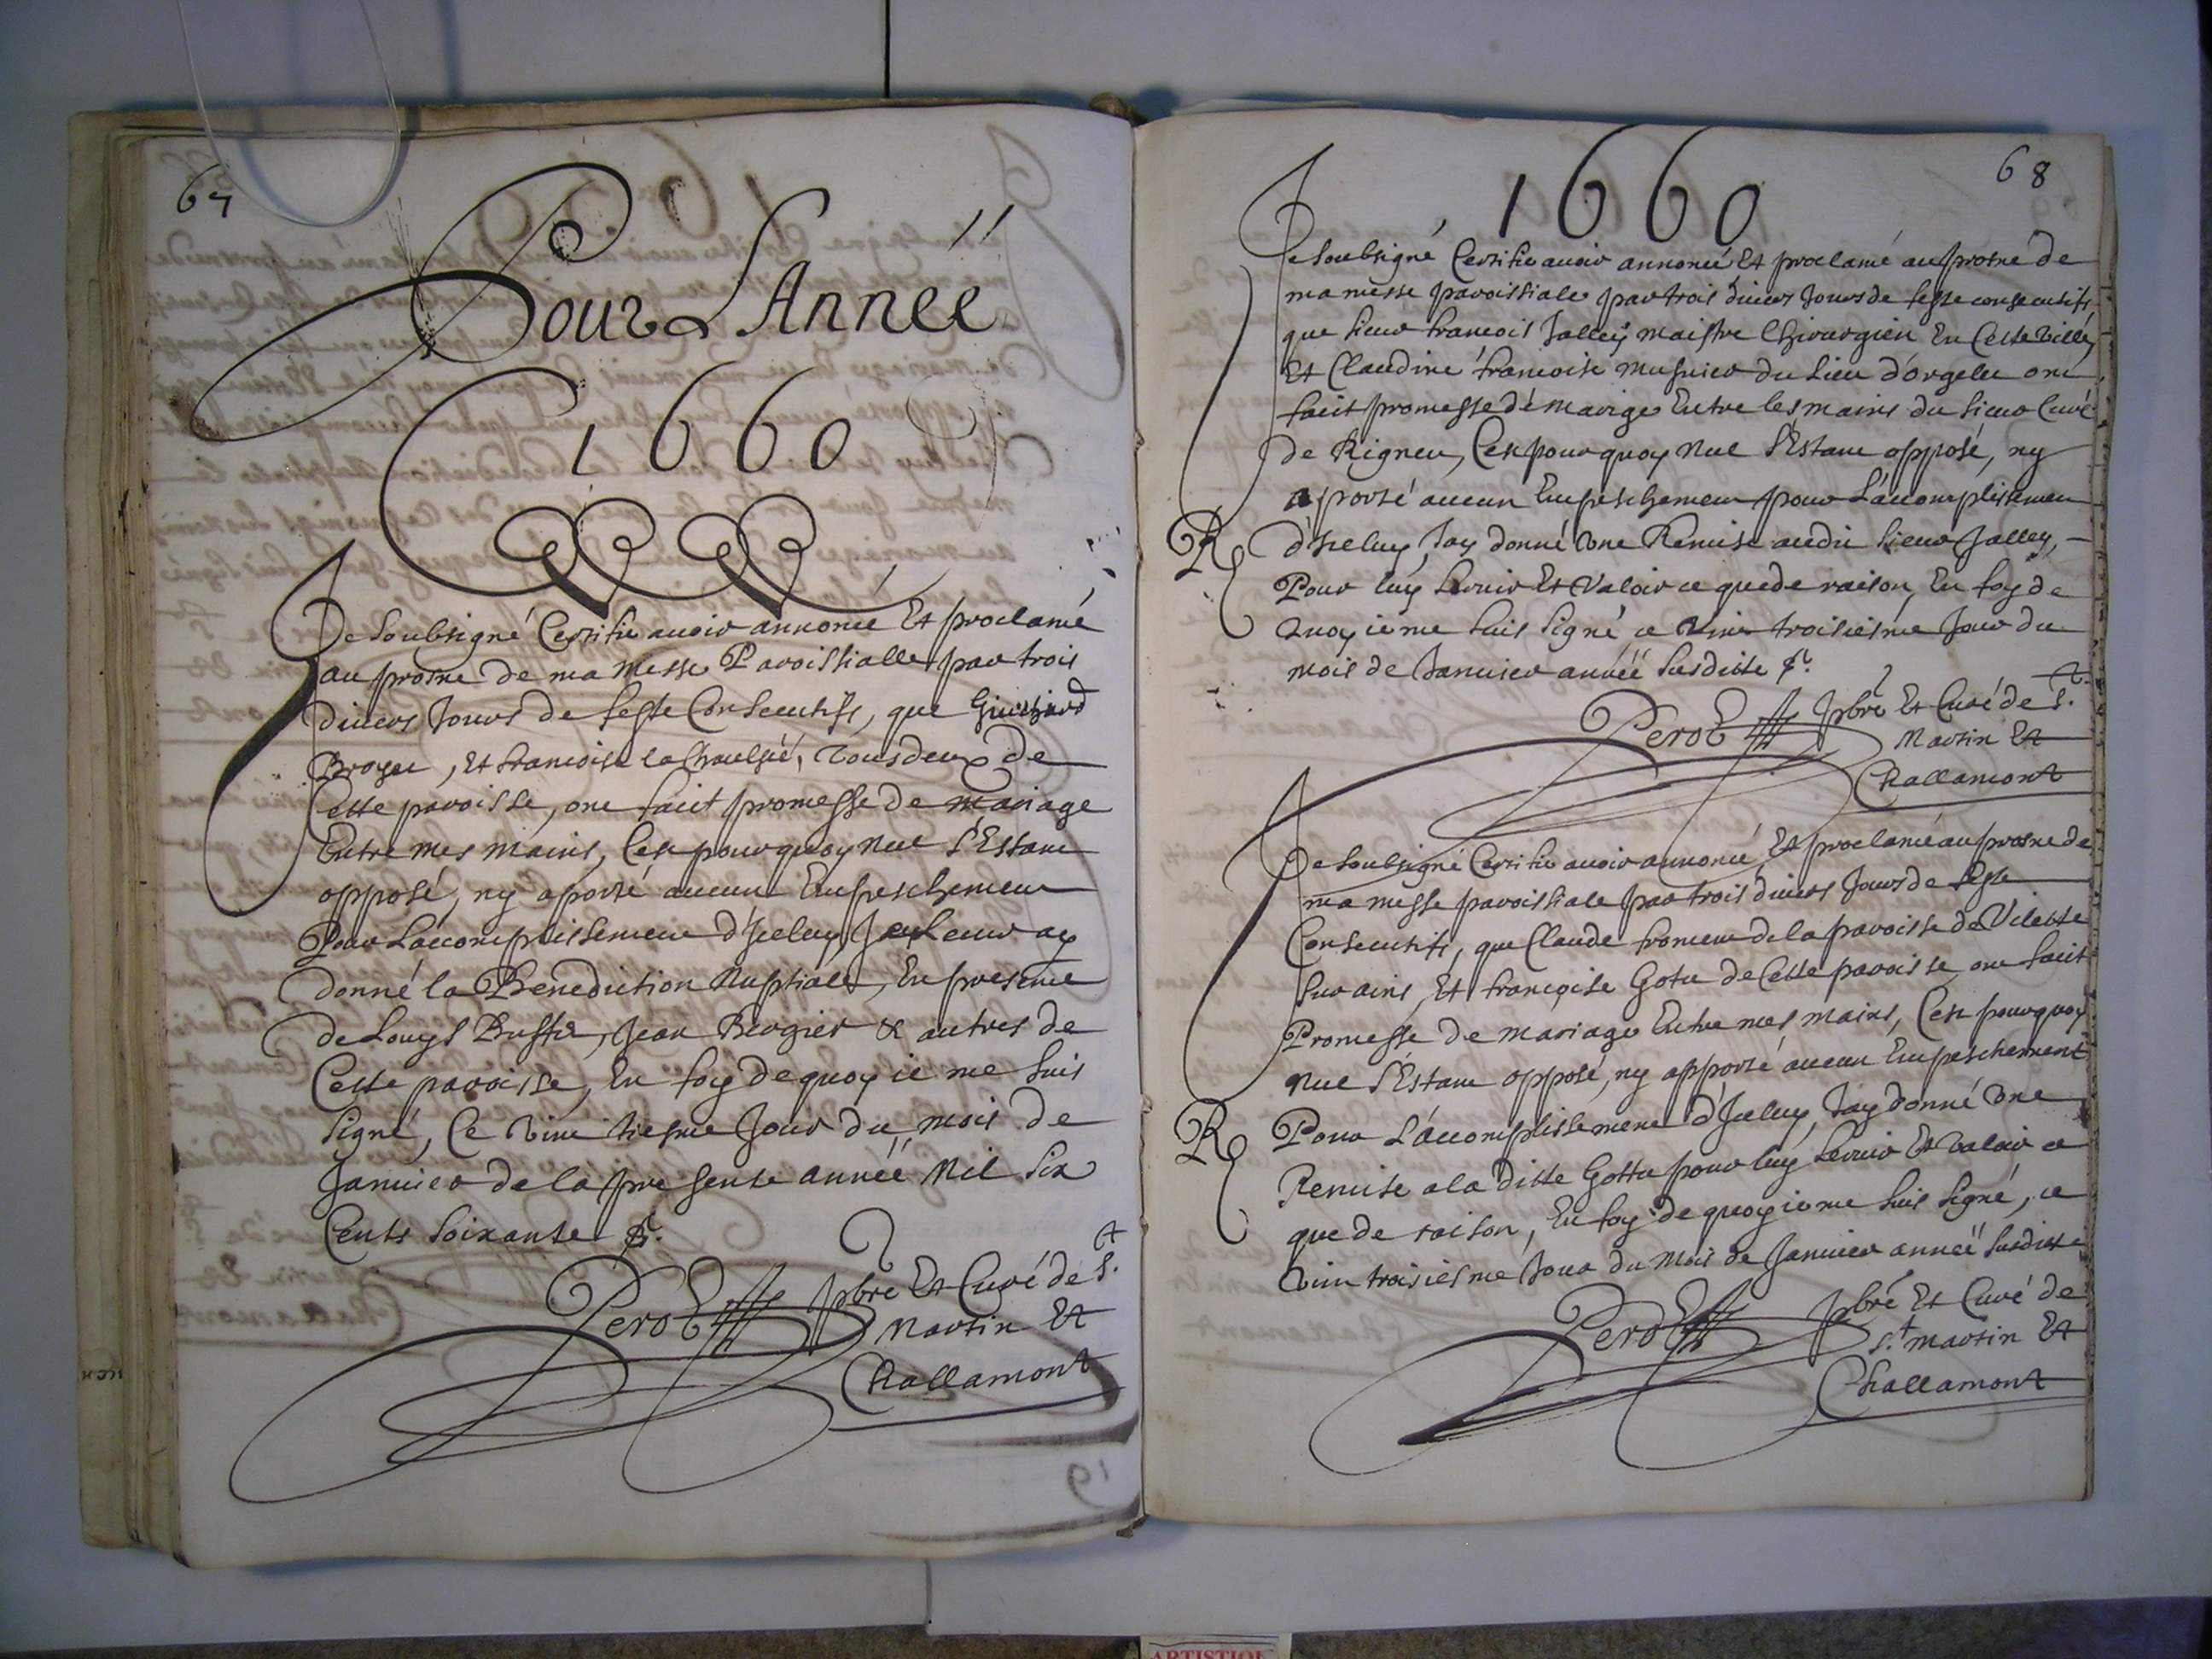 67
Pour L'Année
1660
Je Soubsigné Certifie auoir annoncé Et proclamé
au prosne de ma Messe Paroissialle, par trois
diuers Jours de feste Consecutifs, que Guichard
Broyer, Et francoise la Chaulseé, Tous deux de
Cette paroisse, ont faict promesse de mariage
Entre mes mains, C'est pourquoy Nul S'Estant
opposé, ny aporté aucun Empeschement
Pour L'accomplissement d'Jceluy, Je Leur ay
donné la Benediction Nuptiale, En presence
de Louys Buffet, Jean Bergier & autres de
Cette paroisse, En foy de quoy ie me suis
Signé, Ce Vint tiesme Jour du mois de
Januier de la presente année Mil Six
Cents Soixante
Perot pbre Et Curé de St
Martin Et
Challamont
19
68
1660
Je Soubsigné Certifie auoir annoncé Et proclamé au prosne de
ma messe paroissiale par trois diuers Jours de feste consecutifs
que Sieur francois Jalley maistre Chirurgien En Cette Ville,
Et Claudine francoise musnier du Lieu d'orgelet ont
faict promesse de mariage Entre les mains du Sieur Curé
de Rigneu, C'est pourquoy Nul S'Estant opposé, ny
aporté aucun Empeschement pour L'accomplissement
R d'Jceluy, J'ay donné Vne Remise audit Sieur Jalley,
Pour luy Seruir Et Valoir ce que de raison, En foy de
Quoy ie me suis Signé ce Vint troisiesme Jour du
mois de Januier année Susditte
Perot pbre Et Curé de St
Martin Et
Challamont
Je Soubsigné Certifie auoir annoncé Et proclamé au prosne de
ma messe paroissiale par trois diuers Jours de feste
Consecutifs, que Claude froment de la paroisse de Vilette
Sur ains, Et francoise Gotu de Cette paroisse ont faict
Promesse de Mariage Entre mes mains, C'est pourquoy
Nul S'Estant opposé, ny apporté aucun Empeschement
R Pour L'accomplissement d'Jceluy, J'ay donné Vne
Remise a la ditte Gottu pour luy Seruir Et Valoir ce
que de raison, En foy de quoy ie me suis Signé, ce
Vint troisiesme Jour du Mois de Januier année Susditte
Perot pbre Et Curé de
St martin Et
Challamont